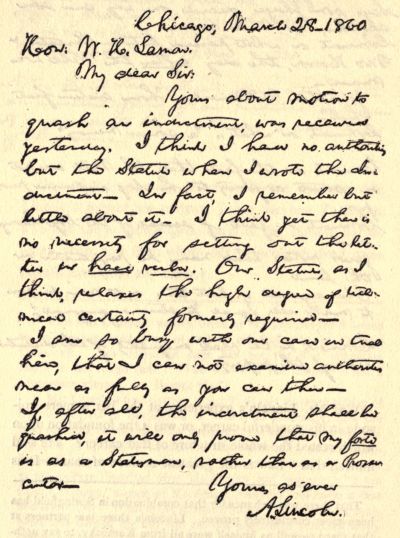 Chicago, March 28-1860
Hon: W. H. Lamon.
My dear Sir:
Yours about motion to
quash an indictment, was received
yesterday. I think I have no authority
but the Statute when I wrote the In-
dictment— In fact, I remember but
little about it— I think yet there is
no necessity for setting out the let-
ter in haec verba. Our Statute, as I
think, relaxes the high degree of tech-
nical certainty formerly required—
I am so busy with our case on trial
here, that I can not examine authorities
near as fully as you can there—
If, after all, the indictment shall be
quashed, it will only prove that my forte
is as a Statesman, rather than as a Prose-
cutor—
Yours, as ever
A. Lincoln.